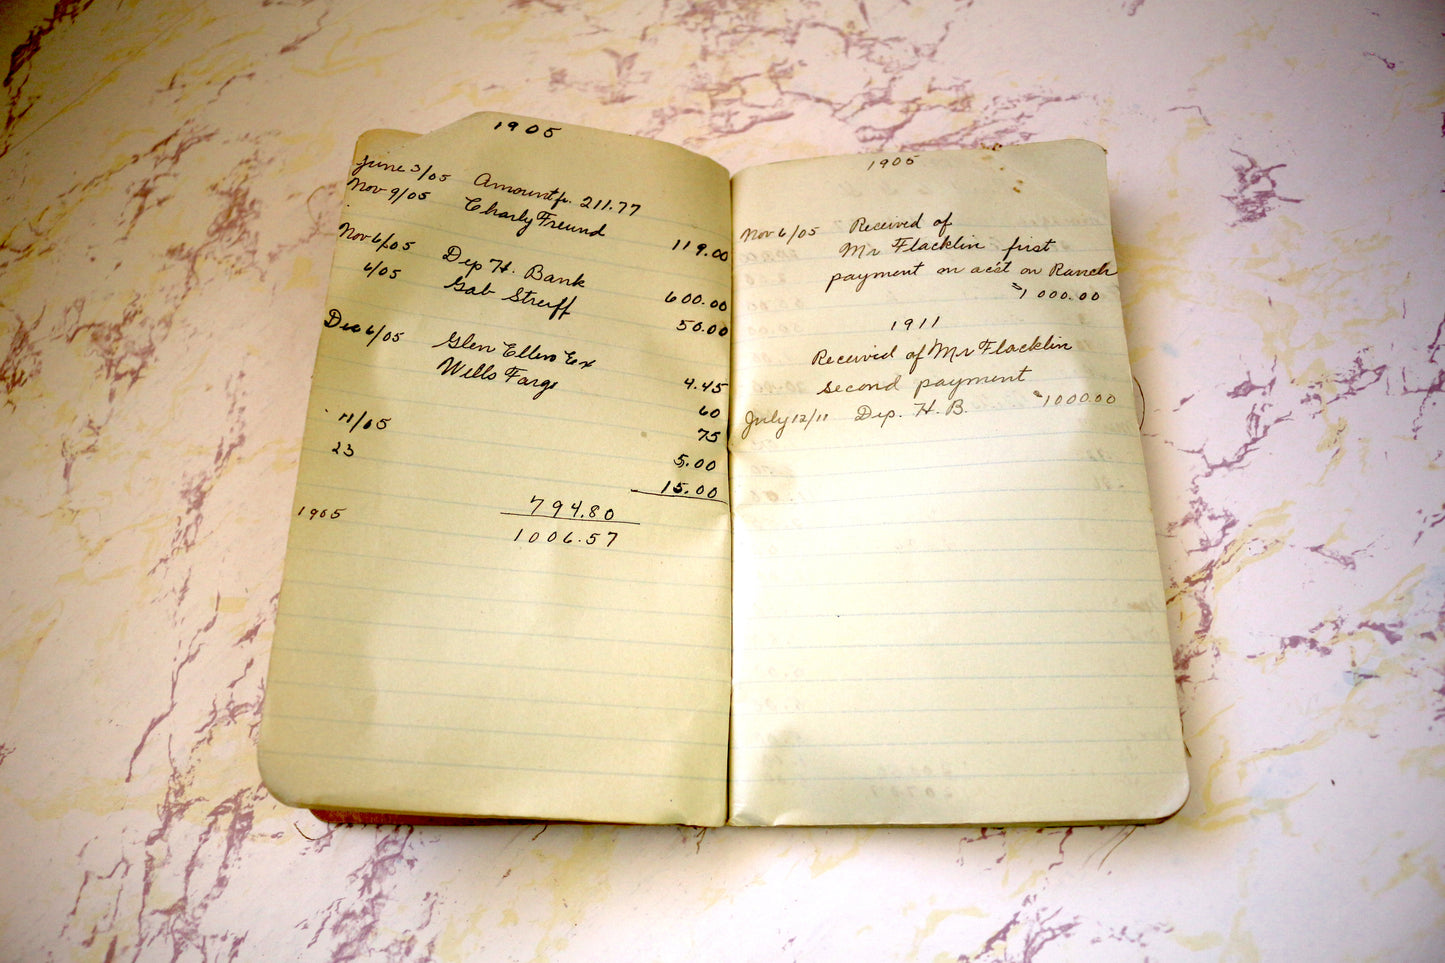 1905
June 3/05 Amount fr. 211.77
Nov 9/05 Charly Freund 119.00
Nov 6/05 Dep H. Bank 600.00
6/05 Gab Streiff 50.00
Dec 6/05 Glen Ellen Ex
Wells Fargo 4.45
60
11/05 75
23 5.00
15.00
794.80
1905 1006.57
1905
Nov 6/05 Received of
Mr Flacklin first
payment on acst on Ranch
$1000.00
1911
Received of Mr Flacklin
second payment
July 12/11 Dep. H. B. $1000.00